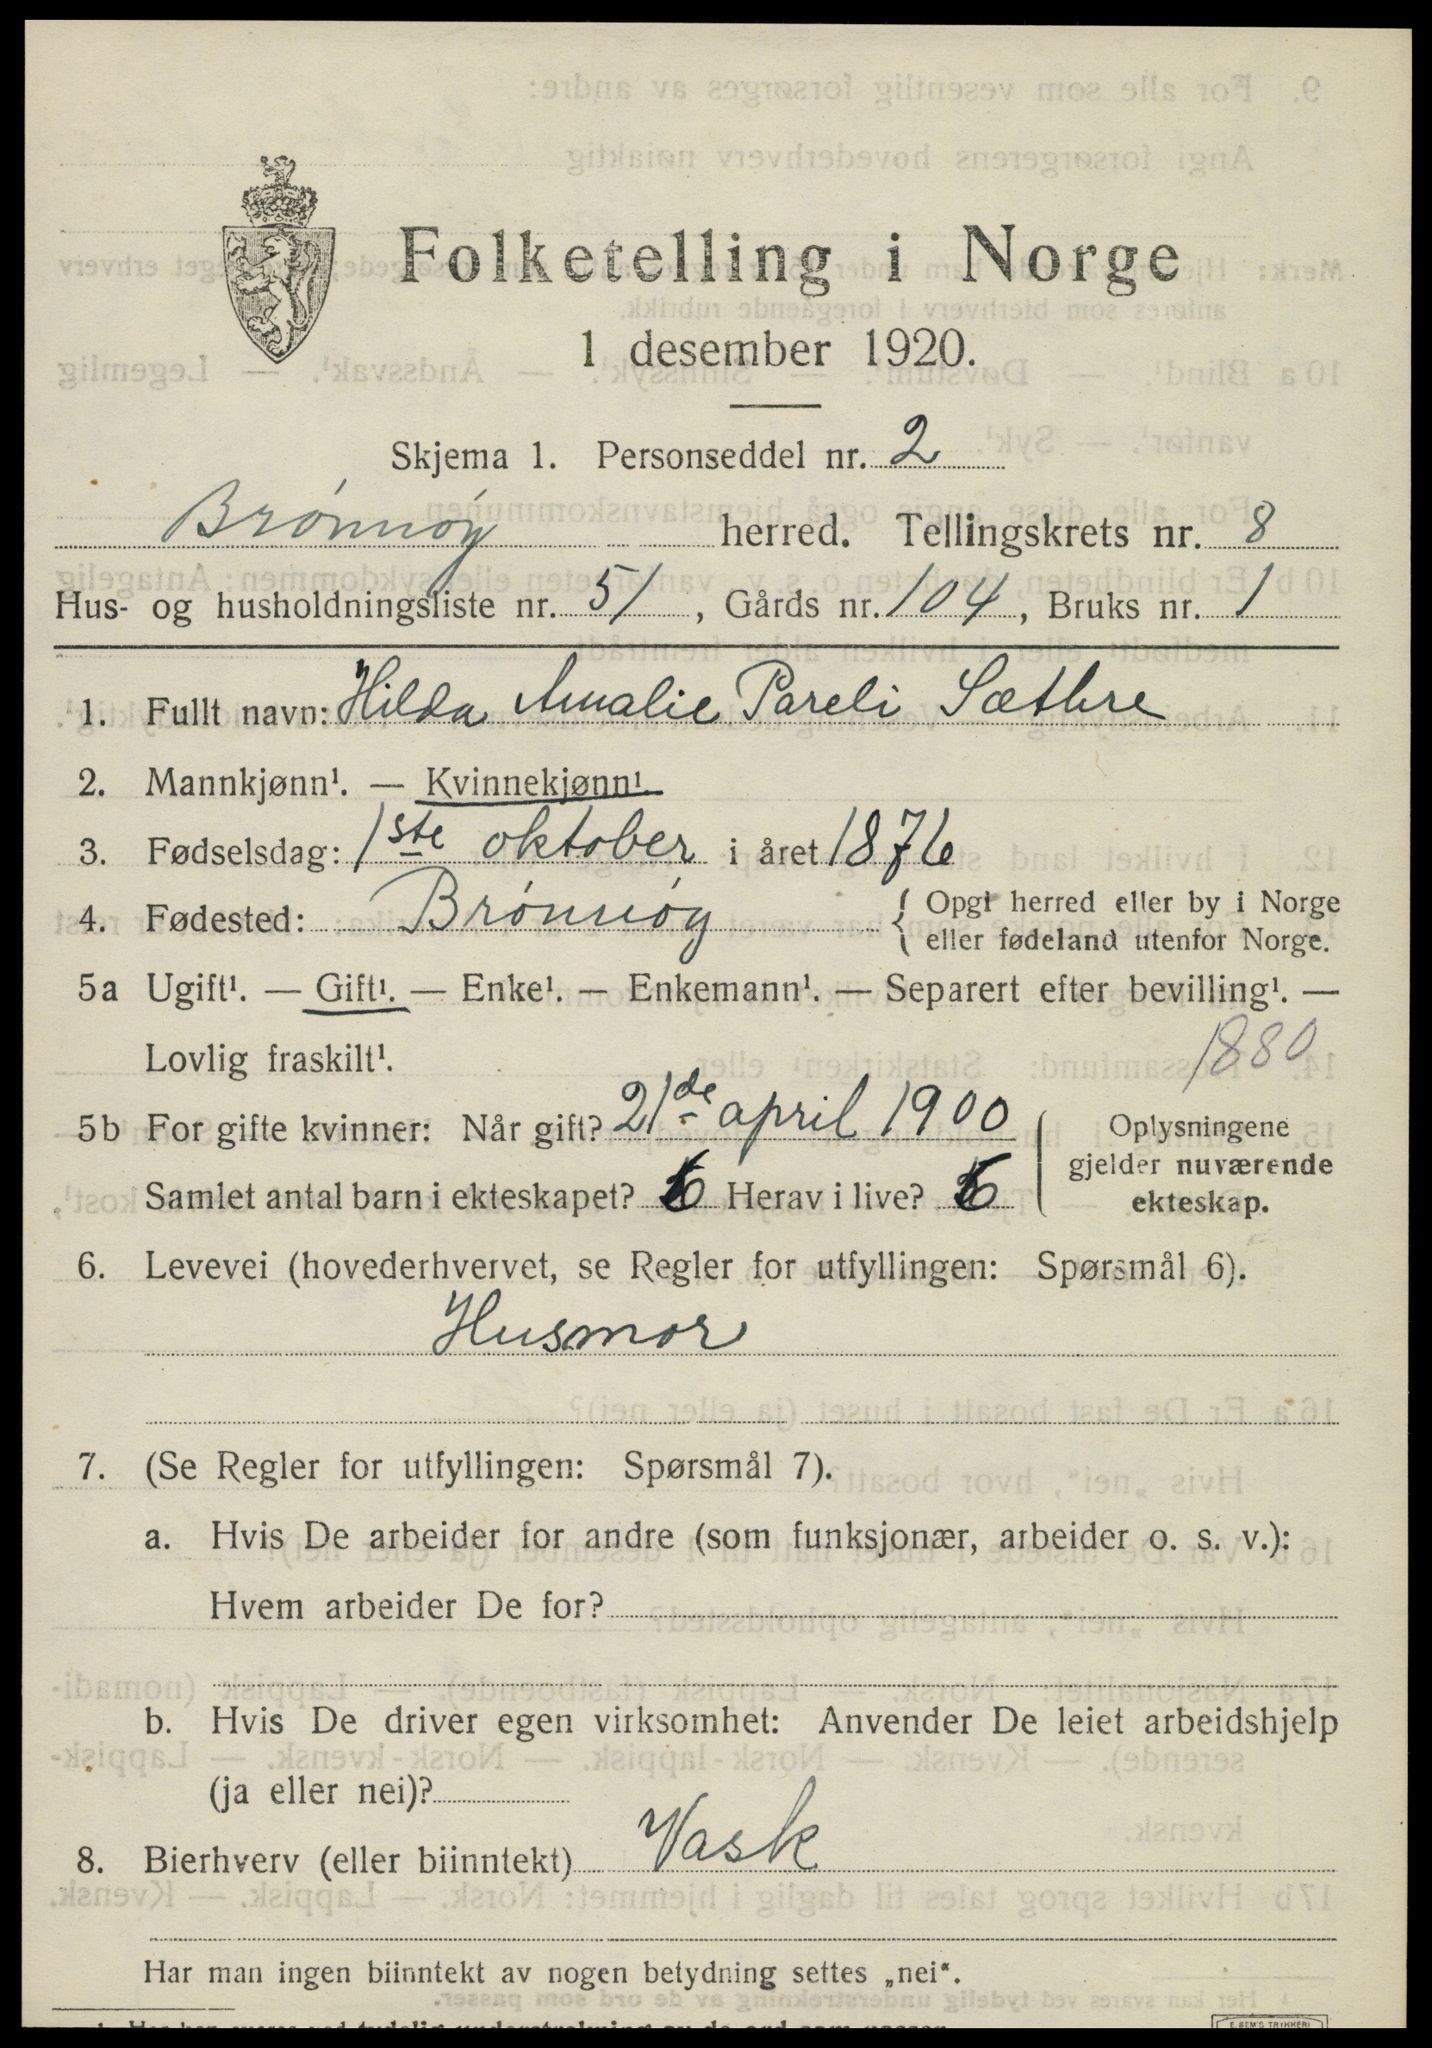 Folketelling i Norge
1 desember 1920.
Skjema 1. Personseddel nr. 2
Brónnóy herred. Tellingskrets nr. 8
Hus- og husholdningsliste nr. 51, Gårds nr. 104, Bruks nr. 1
1. Fullt navn: Hilda Amalie Pareli Sæthre
2. Mannkjønn¹. — Kvinnekjønn¹.
3. Fødselsdag: 1ste oktober i året 1876
4. Fødested: Brónnóy { Opgi herred eller by i Norge
eller fødeland utenfor Norge.
5a Ugift¹. — Gift¹. — Enke¹. — Enkemann¹. — Separert efter bevilling¹. —
Lovlig fraskilt¹. 1880
5b For gifte kvinner: Når gift? 21de april 1900
Samlet antal barn i ekteskapet? 6 Herav i live? 6
Oplysningene
gjelder nuværende
ekteskap.
6. Levevei (hovederhvervet, se Regler for utfyllingen: Spørsmål 6).
Husmor
7. (Se Regler for utfyllingen: Spørsmål 7).
a. Hvis De arbeider for andre (som funksjonær, arbeider o. s. v.):
Hvem arbeider De for?
b. Hvis De driver egen virksomhet: Anvender De leiet arbeidshjelp
(ja eller nei)?
8. Bierhverv (eller biinntekt) Vask
Har man ingen biinntekt av nogen betydning settes „nei“.